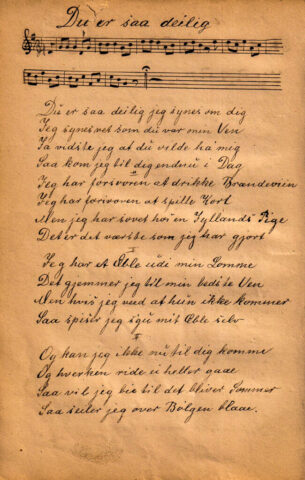 Du er saa deilig
Du er saa deilig jeg synes om dig
Jeg synes ret som du var min Ven
Ja vidste jeg at du velde ha mig
Saa kom jeg til dig endnu i Dag
II
Jeg har forsvoren at drikke Brandeviin
Jeg har forsvoren at spille Kort
Men jeg har sovet hos en Jyllands Pige
Det er det værste som jeg har gjort
Jeg har et Eble udi min Lomme
Det gjemmer jeg til min bedste Ven
Men hvis jeg ved at hun ikke kommer
Saa spiser jeg sgu mit Eble selv
Og kan jeg ikke nu til dig komme
Og hverken ride ei heller gaae
Saa vil jeg bie til det bliver Sommer
Saa seiler jeg over Bölgen blaae.